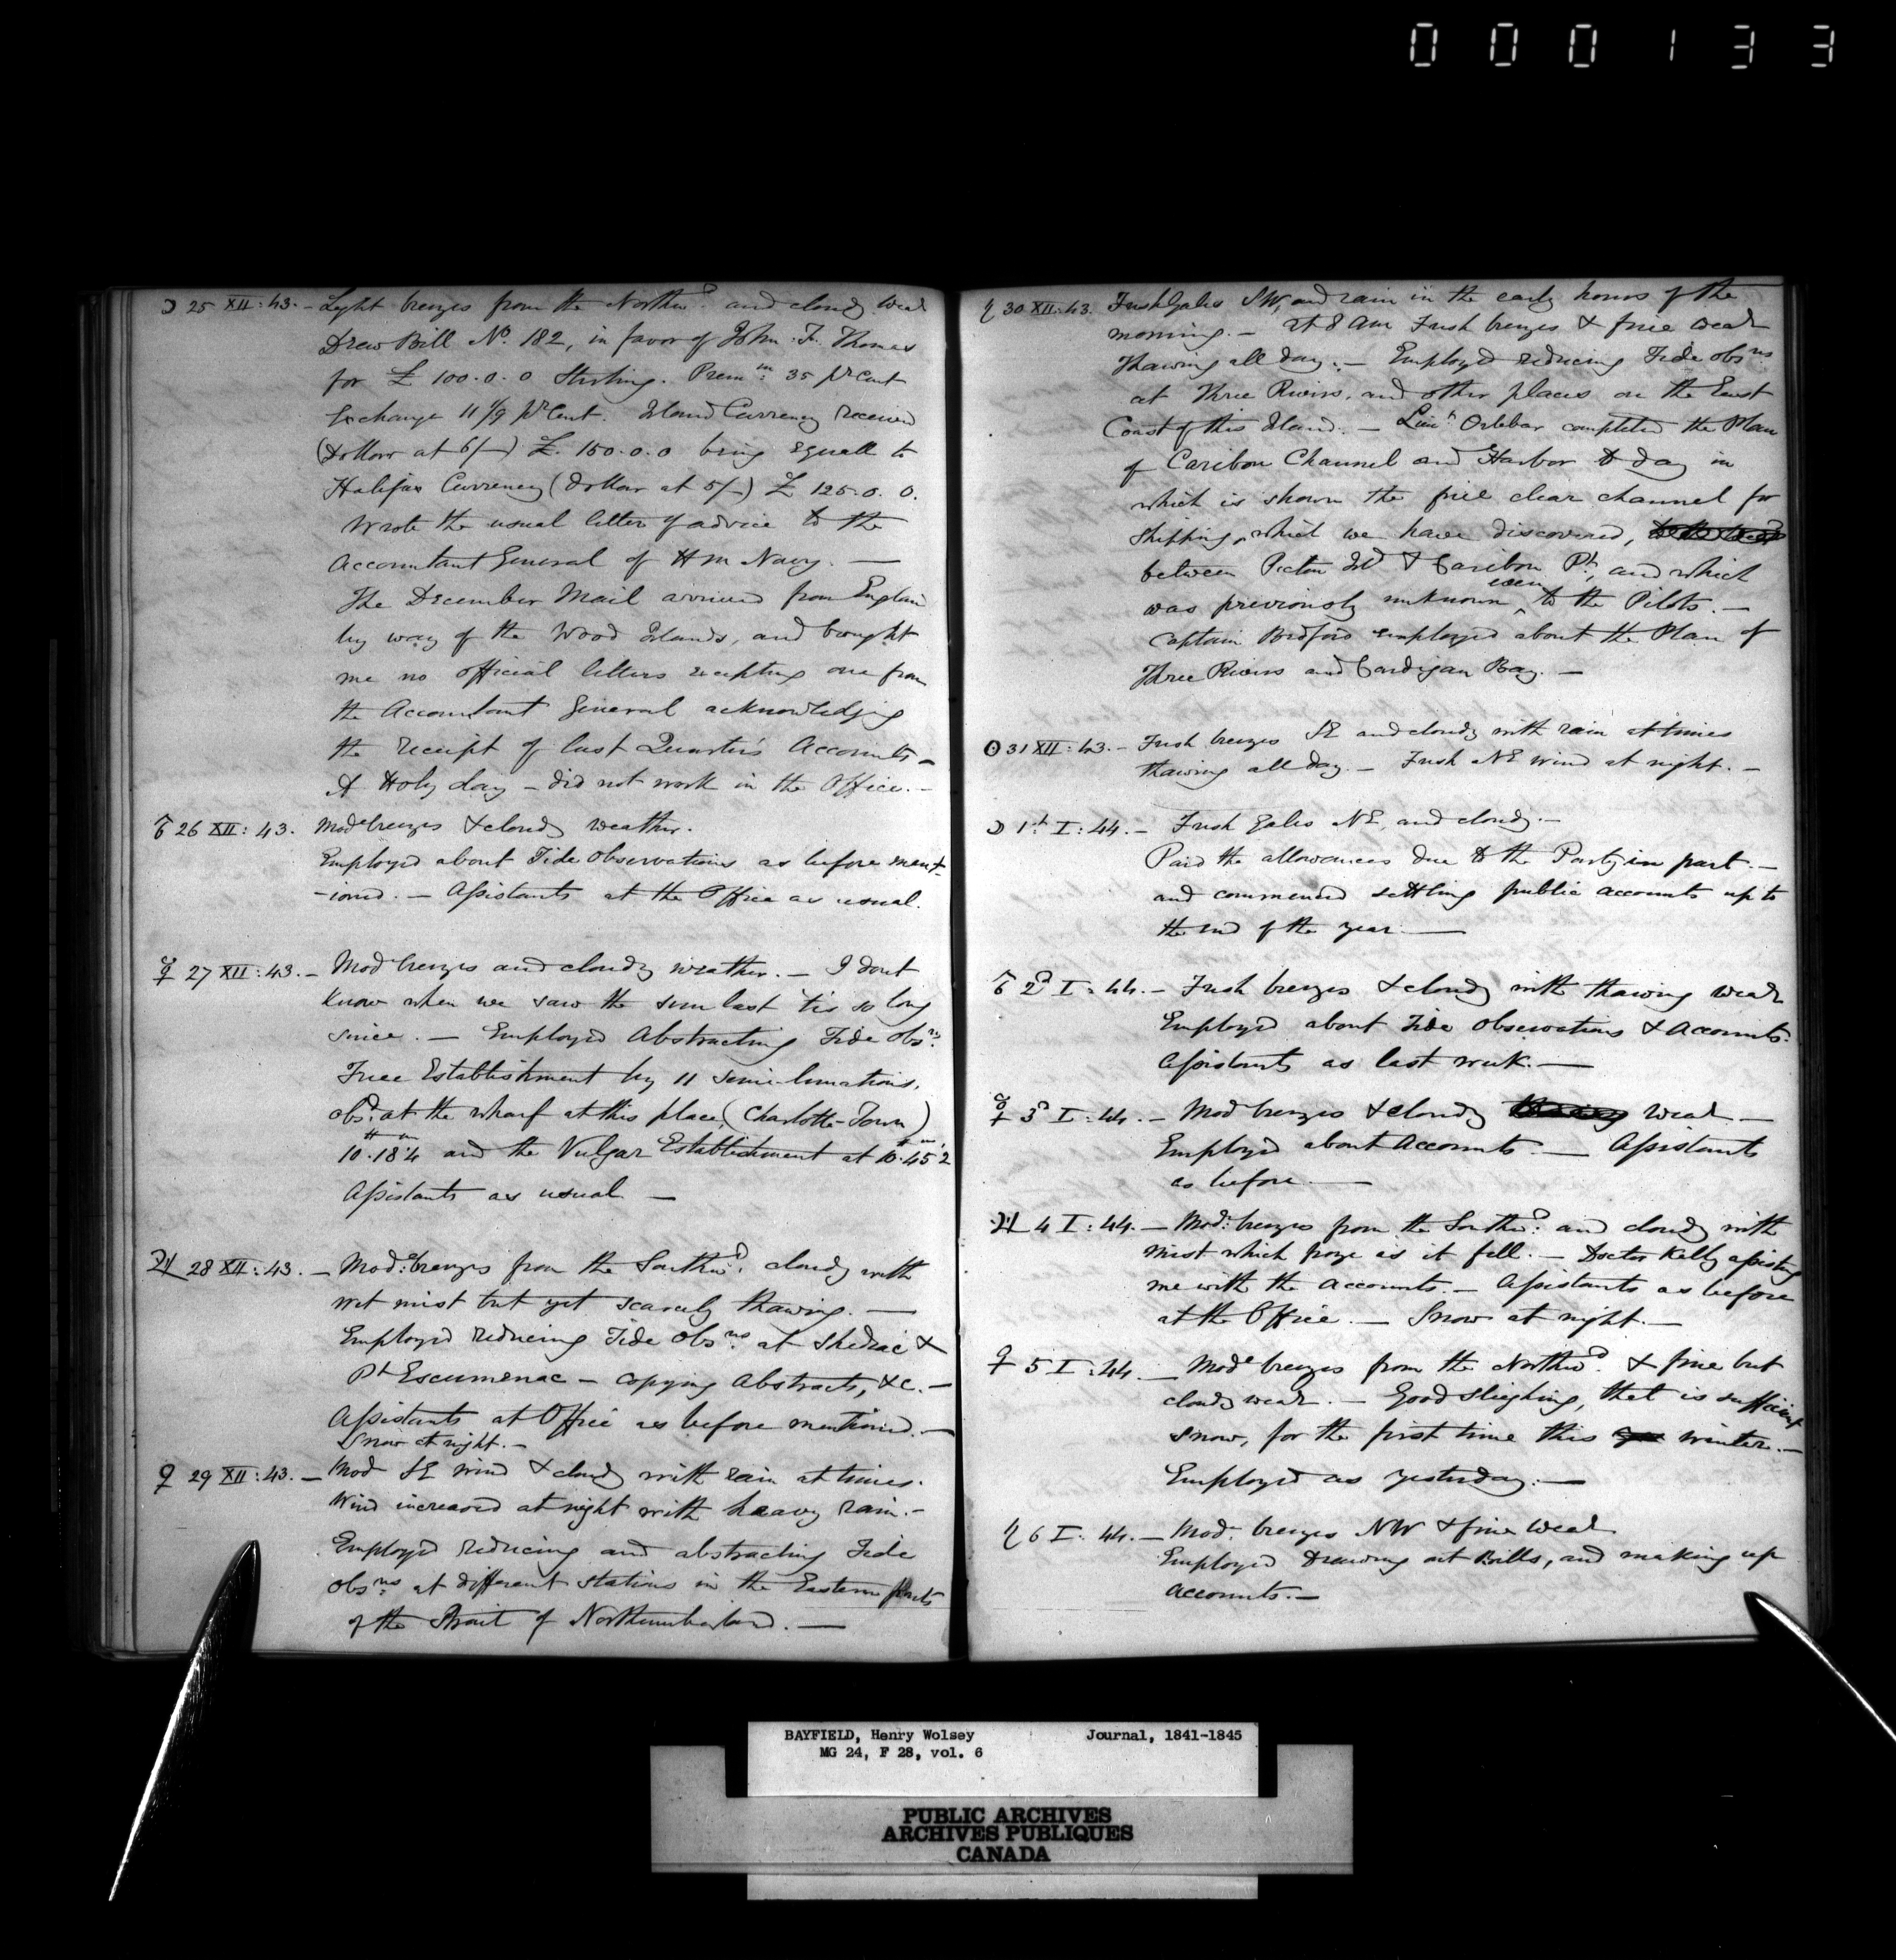 000133
☽ 25 XII : 43. – Light breezes from the Northwd. and cloudy wear
Drew Bill No. 182, in favor of John. F. Thomas
for £ 100.0.0 Sterling. Premm: 35 pr Cent
Exchange 11 1/9 pr Cent. Island Currency received
(Dollar at 6/–) £. 150.0.0 being equall to
Halifax Currency (dollar at 5/–) £ 125.0.0.
Wrote the usual letter of advice to the
Accountant General of H M Navy. —
The December Mail arrived from England
by way of the Wood Islands, and brought
me no official letters excepting one from
the Accountant General acknowledging
the receipt of last Quarter's Accounts –
A Holy day – did not work in the Office. –
♂ 26 XII : 43. Mode breezes & cloudy weather.
Employed about Tide Observations as before ment-
-ioned. – Assistants at the Office as usual.
☿ 27 XII : 43. – Mod breezes and cloudy weather. – I dont
know when we saw the sun last 'tis so long
since. – Employed Abstracting Tide Obsns.
True Establishment by 11 semi-lunations,
obsd. at the wharf at this place, (Charlotte-Town)
10.18.4 and the Vulgar Establishment at 10.45.2
Assistants as usual —
♃ 28 XII : 43. – Mode: breezes from the Southwd. cloudy with
wet mist but yet scarcely thawing. —
Employed reducing Tide Obsns. at Shediac &
Pt Escumenac – copying Abstracts, &c. –
Assistants at Office as before mentioned. –
Snow at night. –
♀ 29 XII : 43. – Mod SE Wind & cloudy with rain at times.
Wind increased at night with heavy rain. –
Employed reducing and abstracting Tide
Obsns. at different stations in the Eastern parts
of the Strait of Northumberland. —
♄ 30 XII : 43. Fresh Gales SW, and rain in the early hours of the
morning. – at 8 am Fresh breezes & fine wear
Thawing all day. – Employed reducing Tide obsns
at Three Rivers, and other places on the East
Coast of this Island. – Lieut Orlebar completed the Plan
of Caribou Channel and Harbor to day in
which is shown the fine clear channel for
shipping, which we have discovered,
between Pictou Isld & Caribou Pt, and which
was previously unknown even to the Pilots. –
Captain Bedford employed about the Plan of
Three Rivers and Cardigan Bay. –
☉ 31 XII : 43. – Fresh breezes SE and cloudy with rain at times
thawing all day. – Fresh NE wind at night. –
☽ 1st I : 44. – Fresh Gales NE, and cloudy. –
Paid the allowances due to the Party in part. –
and commenced settling public accounts up to
the end of the year. —
♂ 2d I : 44. – Fresh breezes & cloudy with thawing wear
Employed about Tide Observations & Accounts.
Assistants as last week. —
☿ 3d I : 44. – Mod breezes & cloudy wear. –
Employed about Accounts. — Assistants
as before. —
♃ 4 I : 44. – Mod: breezes from the Southwd: and cloudy with
mist which froze as it fell. – Doctor Kelly assisting
me with the Accounts. – Assistants as before
at the Office. – Snow at night. –
♀ 5 I : 44. – Mode breezes from the Northwd. & fine but
cloudy wear. – Good sleighing, that is sufficient
snow, for the first time this winter. –
Employed as yesterday. —
♄ 6 I : 44. – Mod. breezes NW & fine wear
Employed Drawing out Bills, and making up
accounts. –
BAYFIELD, Henry Wolsey Journal, 1841-1845
MG 24, F 28, vol. 6
PUBLIC ARCHIVES
ARCHIVES PUBLIQUES
CANADA